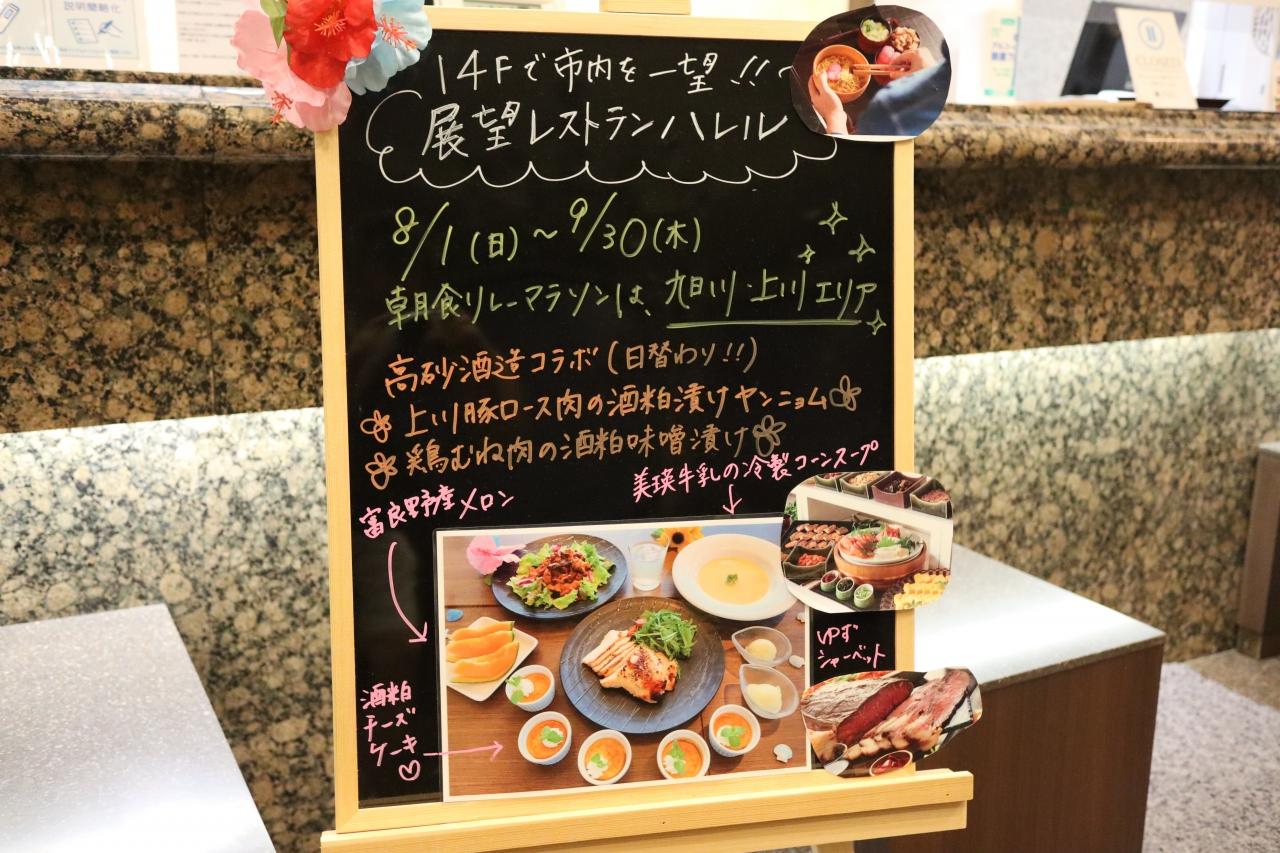 説明簡略化
14Fで市内を一望!!
展望レストランハレル
8/1(日)～9/30(木)
朝食リレーマラソンは、旭川・上川エリア
高砂酒造コラボ(日替わり!!)
上川豚ロース肉の酒粕漬けヤンニョム
鶏むね肉の酒粕味噌漬け
美瑛牛乳の冷製コーンスープ
富良野産メロン
ゆず
シャーベット
酒粕
チーズ
ケーキ♡
CLOSED